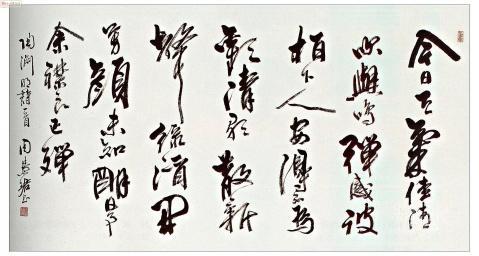 今日天氣佳清
吹與鳴彈感彼
柏下人安得不為
歡清歌散新
聲綠酒開
芳顏未知明日事
余襟良已殫
陶淵明詩一首 周慧珺書